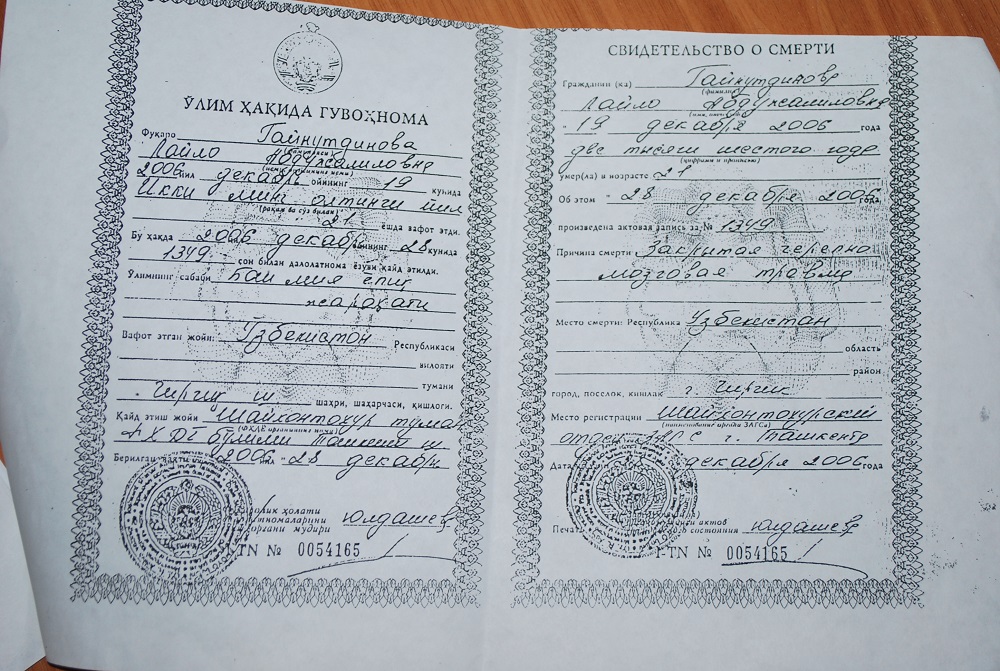 ЎЛИМ ҲАҚИДА ГУВОҲНОМА
Фуқаро Гайнутдинова
Лайло Абдужалиловна
2006 йил декабрь ойининг 19 куңида
Икки минг олтинги йил
(рақам ва сўз билан)
21 ёшда вафот этди.
Бу ҳақда 2006 декабр ойининг 28 кунида
1349 сон билан далолатнома ёзуви қайд этилди.
Ўлимнинг сабаби Бош мия ёпиқ
жароҳати
Вафот этган жойи: Ўзбекистон Республикаси
вилояти
тумани
Чирчиқ ш. шаҳри, шаҳарчаси, қишлоғи.
Қайд этиш жойи Шайхонтохур туман
(ФҲДЁ органининг номи)
ФХДЁ бўлими Тошкент ш.
Берилган вақти 2006 йил 28 декабрь
ҳолати
мудири Юлдашев
I-TN № 0054165
СВИДЕТЕЛЬСТВО О СМЕРТИ
Гражданин (ка) Гайнутдинова
(фамилия)
Лайло Абдужалиловна
(имя, отчество)
19 декабря 2006 года
две тысячи шестого года
(цифрами и прописью)
умер(ла) в возрасте 21
Об этом 28 декабря 2006 года
произведена актовая запись за № 1349
Причина смерти Закрытая черепно
мозговая травма
Место смерти: Республика Узбекистан
область
район
город, поселок, кишлак г. Чирчик
Место регистрации Шайхонтохурский
(наименование органа ЗАГСа)
отдел ЗАГС г. Ташкента
Дата декабря 2006 года
актов
Печать состояния Юлдашев
I-TN № 0054165